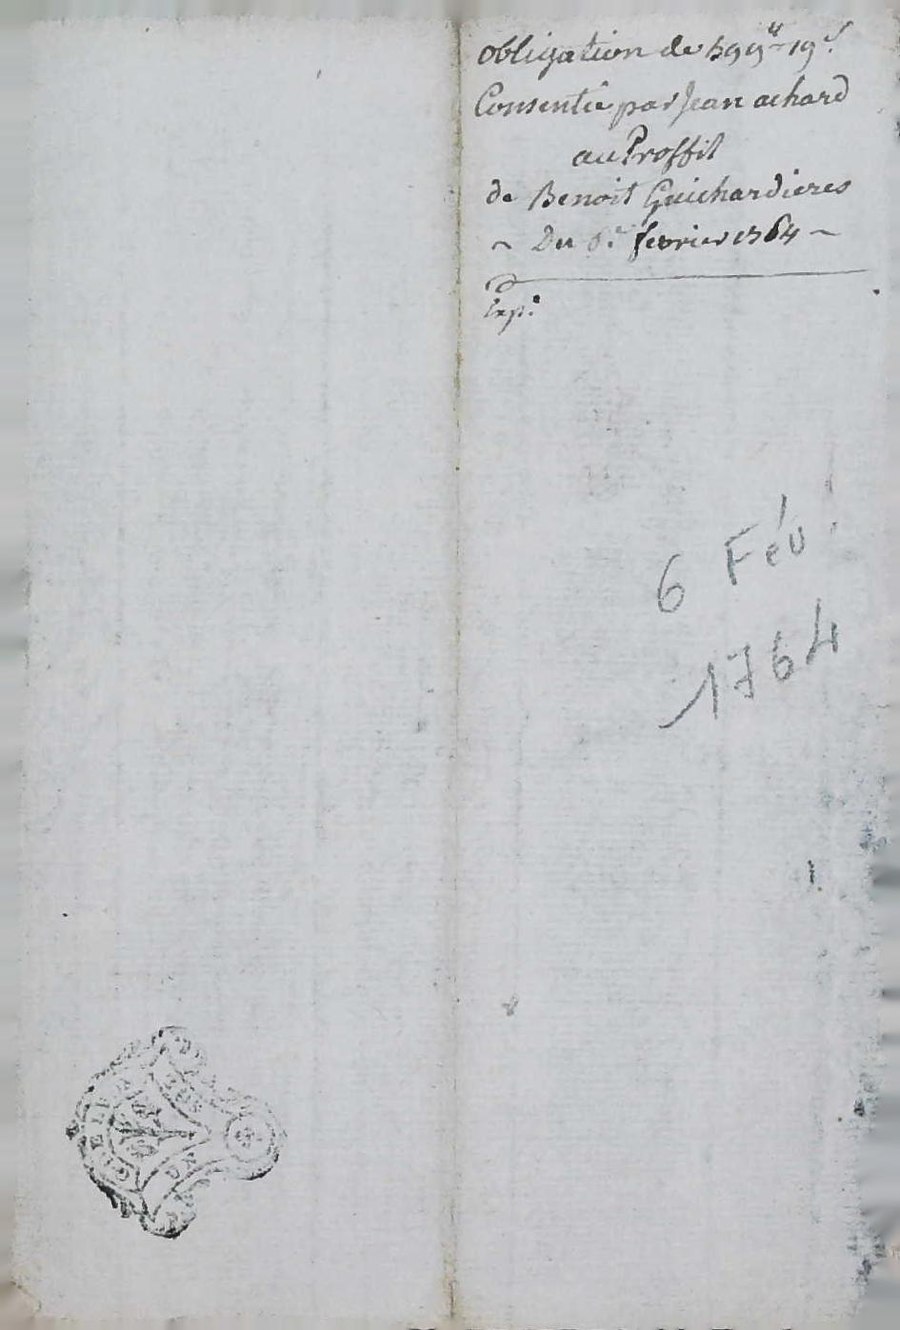 obligation de 599# 19s.
Consentie par Jean achard
au Proffit
de Benoit Guichardieres
~ Du 6e. fevrier 1764 ~
Exp.
6 Fév.
1764